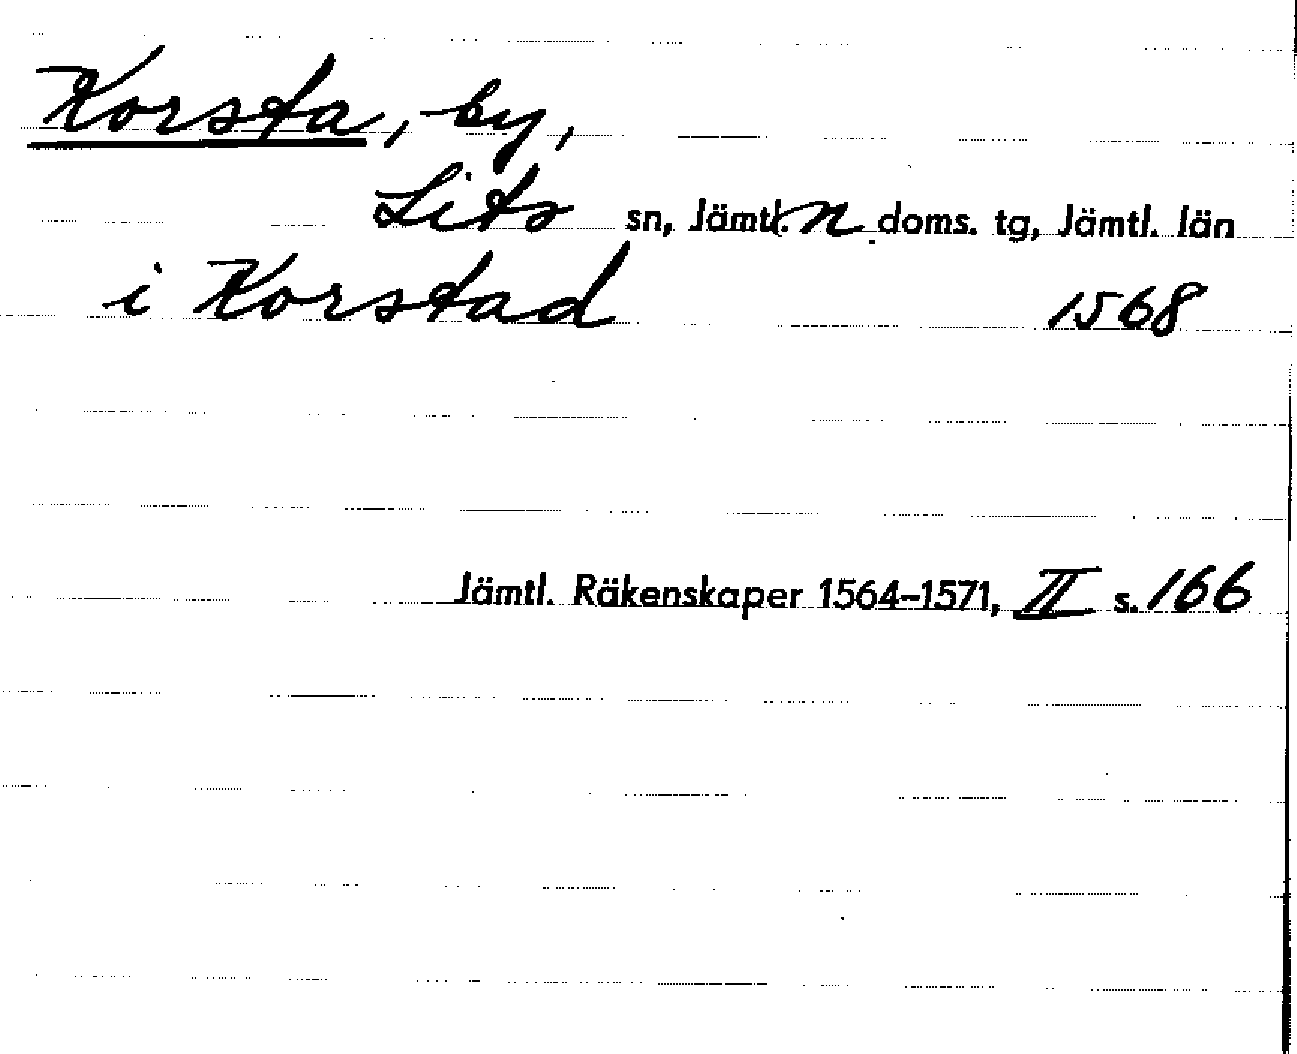 Korsta, by,
Lits sn, Jämtl. n doms. tg, Jämtl. län
i Korstad 1568
Jämtl. Räkenskaper 1564–1571, II s. 166